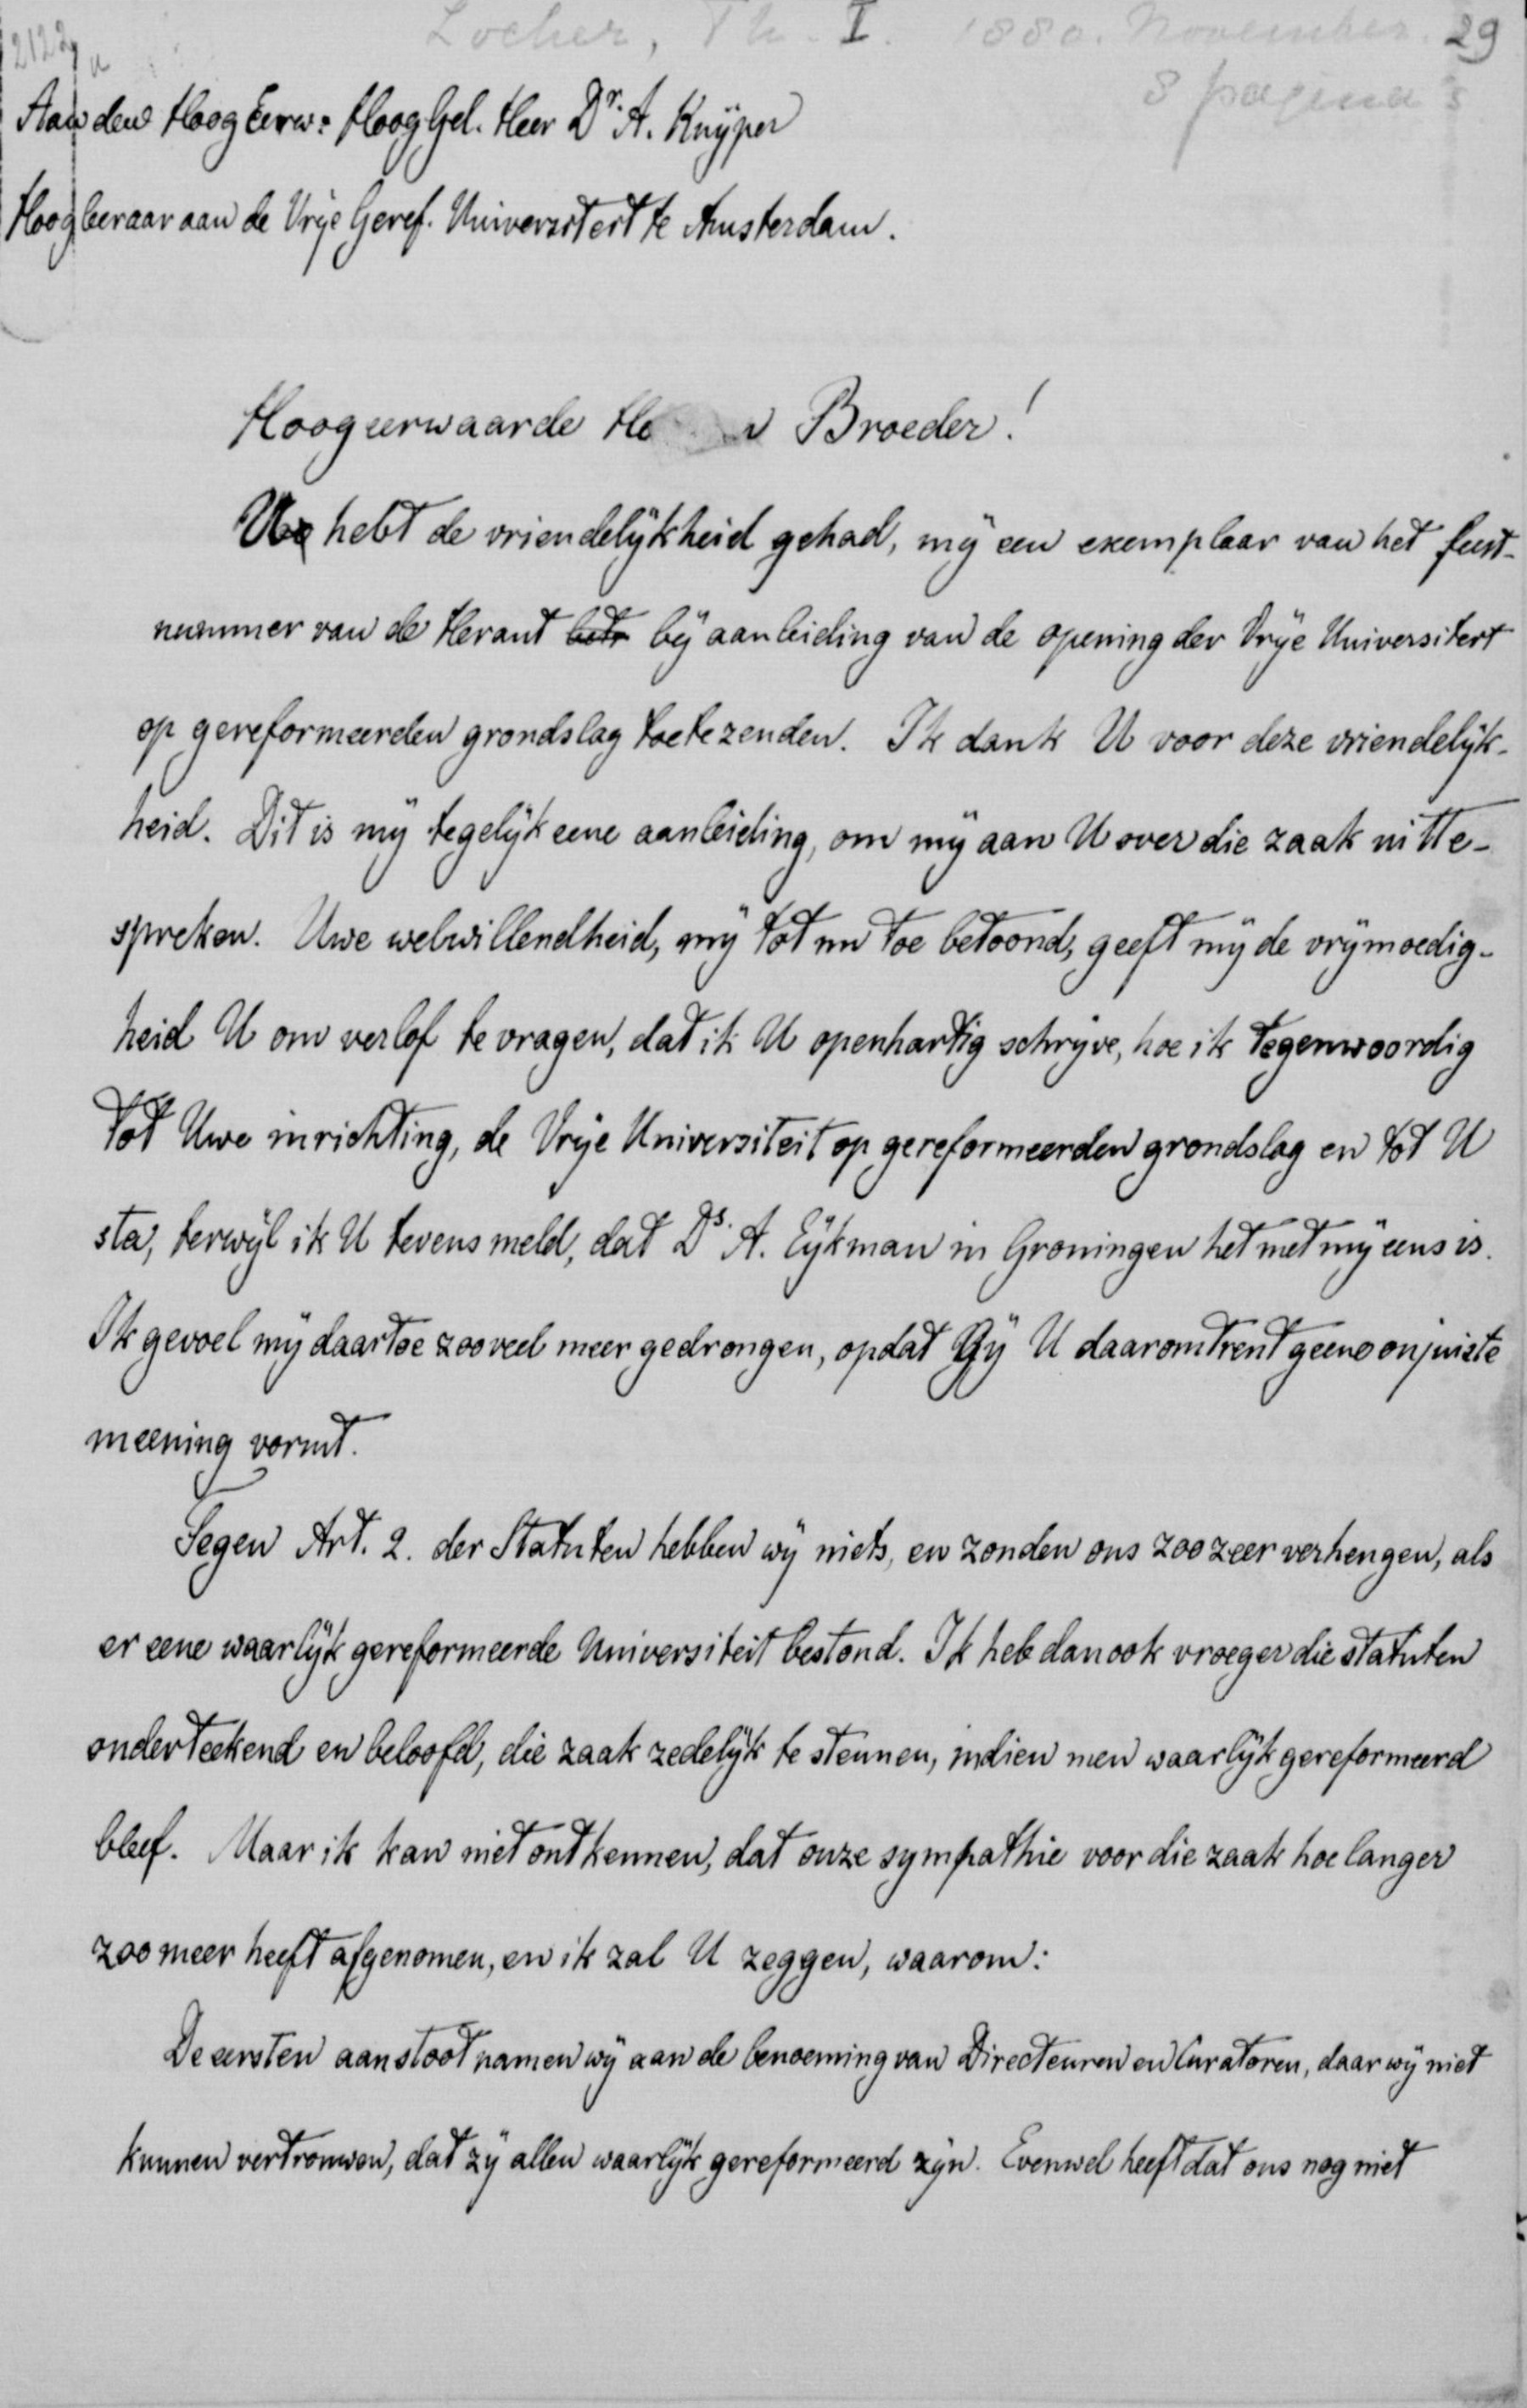 Locher, Th. I. 1880. November. 29
2122
8 pagina's
Aan den HoogEerw: HoogGel. Heer Dr. A. Kuÿper
Hoogleeraar aan de Vrÿe Geref. Universiteit te Amsterdam.
Hoogeerwaarde Broeder!
U hebt de vriendelÿkheid gehad, mÿ een exemplaar van het feest-
nummer van de Heraut bÿ aanleiding van de opening der Vrÿe Universiteit
op gereformeerden grondslag toetezenden. Ik dank U voor deze vriendelÿk-
heid. Dit is mÿ tegelÿk eene aanleiding, om mÿ aan U over die zaak uitte-
spreken. Uwe welwillendheid, mÿ tot nu toe betoond, geeft mÿ de vrÿmoedig-
heid U om verlof te vragen, dat ik U openhartig schrÿve, hoe ik tegenwoordig
tot Uwe inrichting, de Vrÿe Universiteit op gereformeerden grondslag en tot U
sta, terwÿl ik U tevens meld, dat Ds. A. Eÿkman in Groningen het met mÿ eens is.
Ik gevoel mÿ daartoe zooveel meer gedrongen, opdat Gÿ U daaromtrent geene onjuiste
meening vormt.
Tegen Art. 2. der Statuten hebben wÿ niets, en zouden ons zoo zeer verheugen, als
er eene waarlÿk gereformeerde Universiteit bestond. Ik heb dan ook vroeger die statuten
onderteekend en beloofd, die zaak zedelÿk te steunen, indien men waarlÿk gereformeerd
bleef. Maar ik kan niet ontkennen, dat onze sympathie voor die zaak hoe langer
zoo meer heeft afgenomen, en ik zal U zeggen, waarom:
De eersten aanstoot namen wÿ aan de benoeming van Directeuren en Curatoren, daar wÿ niet
kunnen vertrouwen, dat zÿ allen waarlÿk gereformeerd zÿn. Evenwel heeft dat ons nog niet